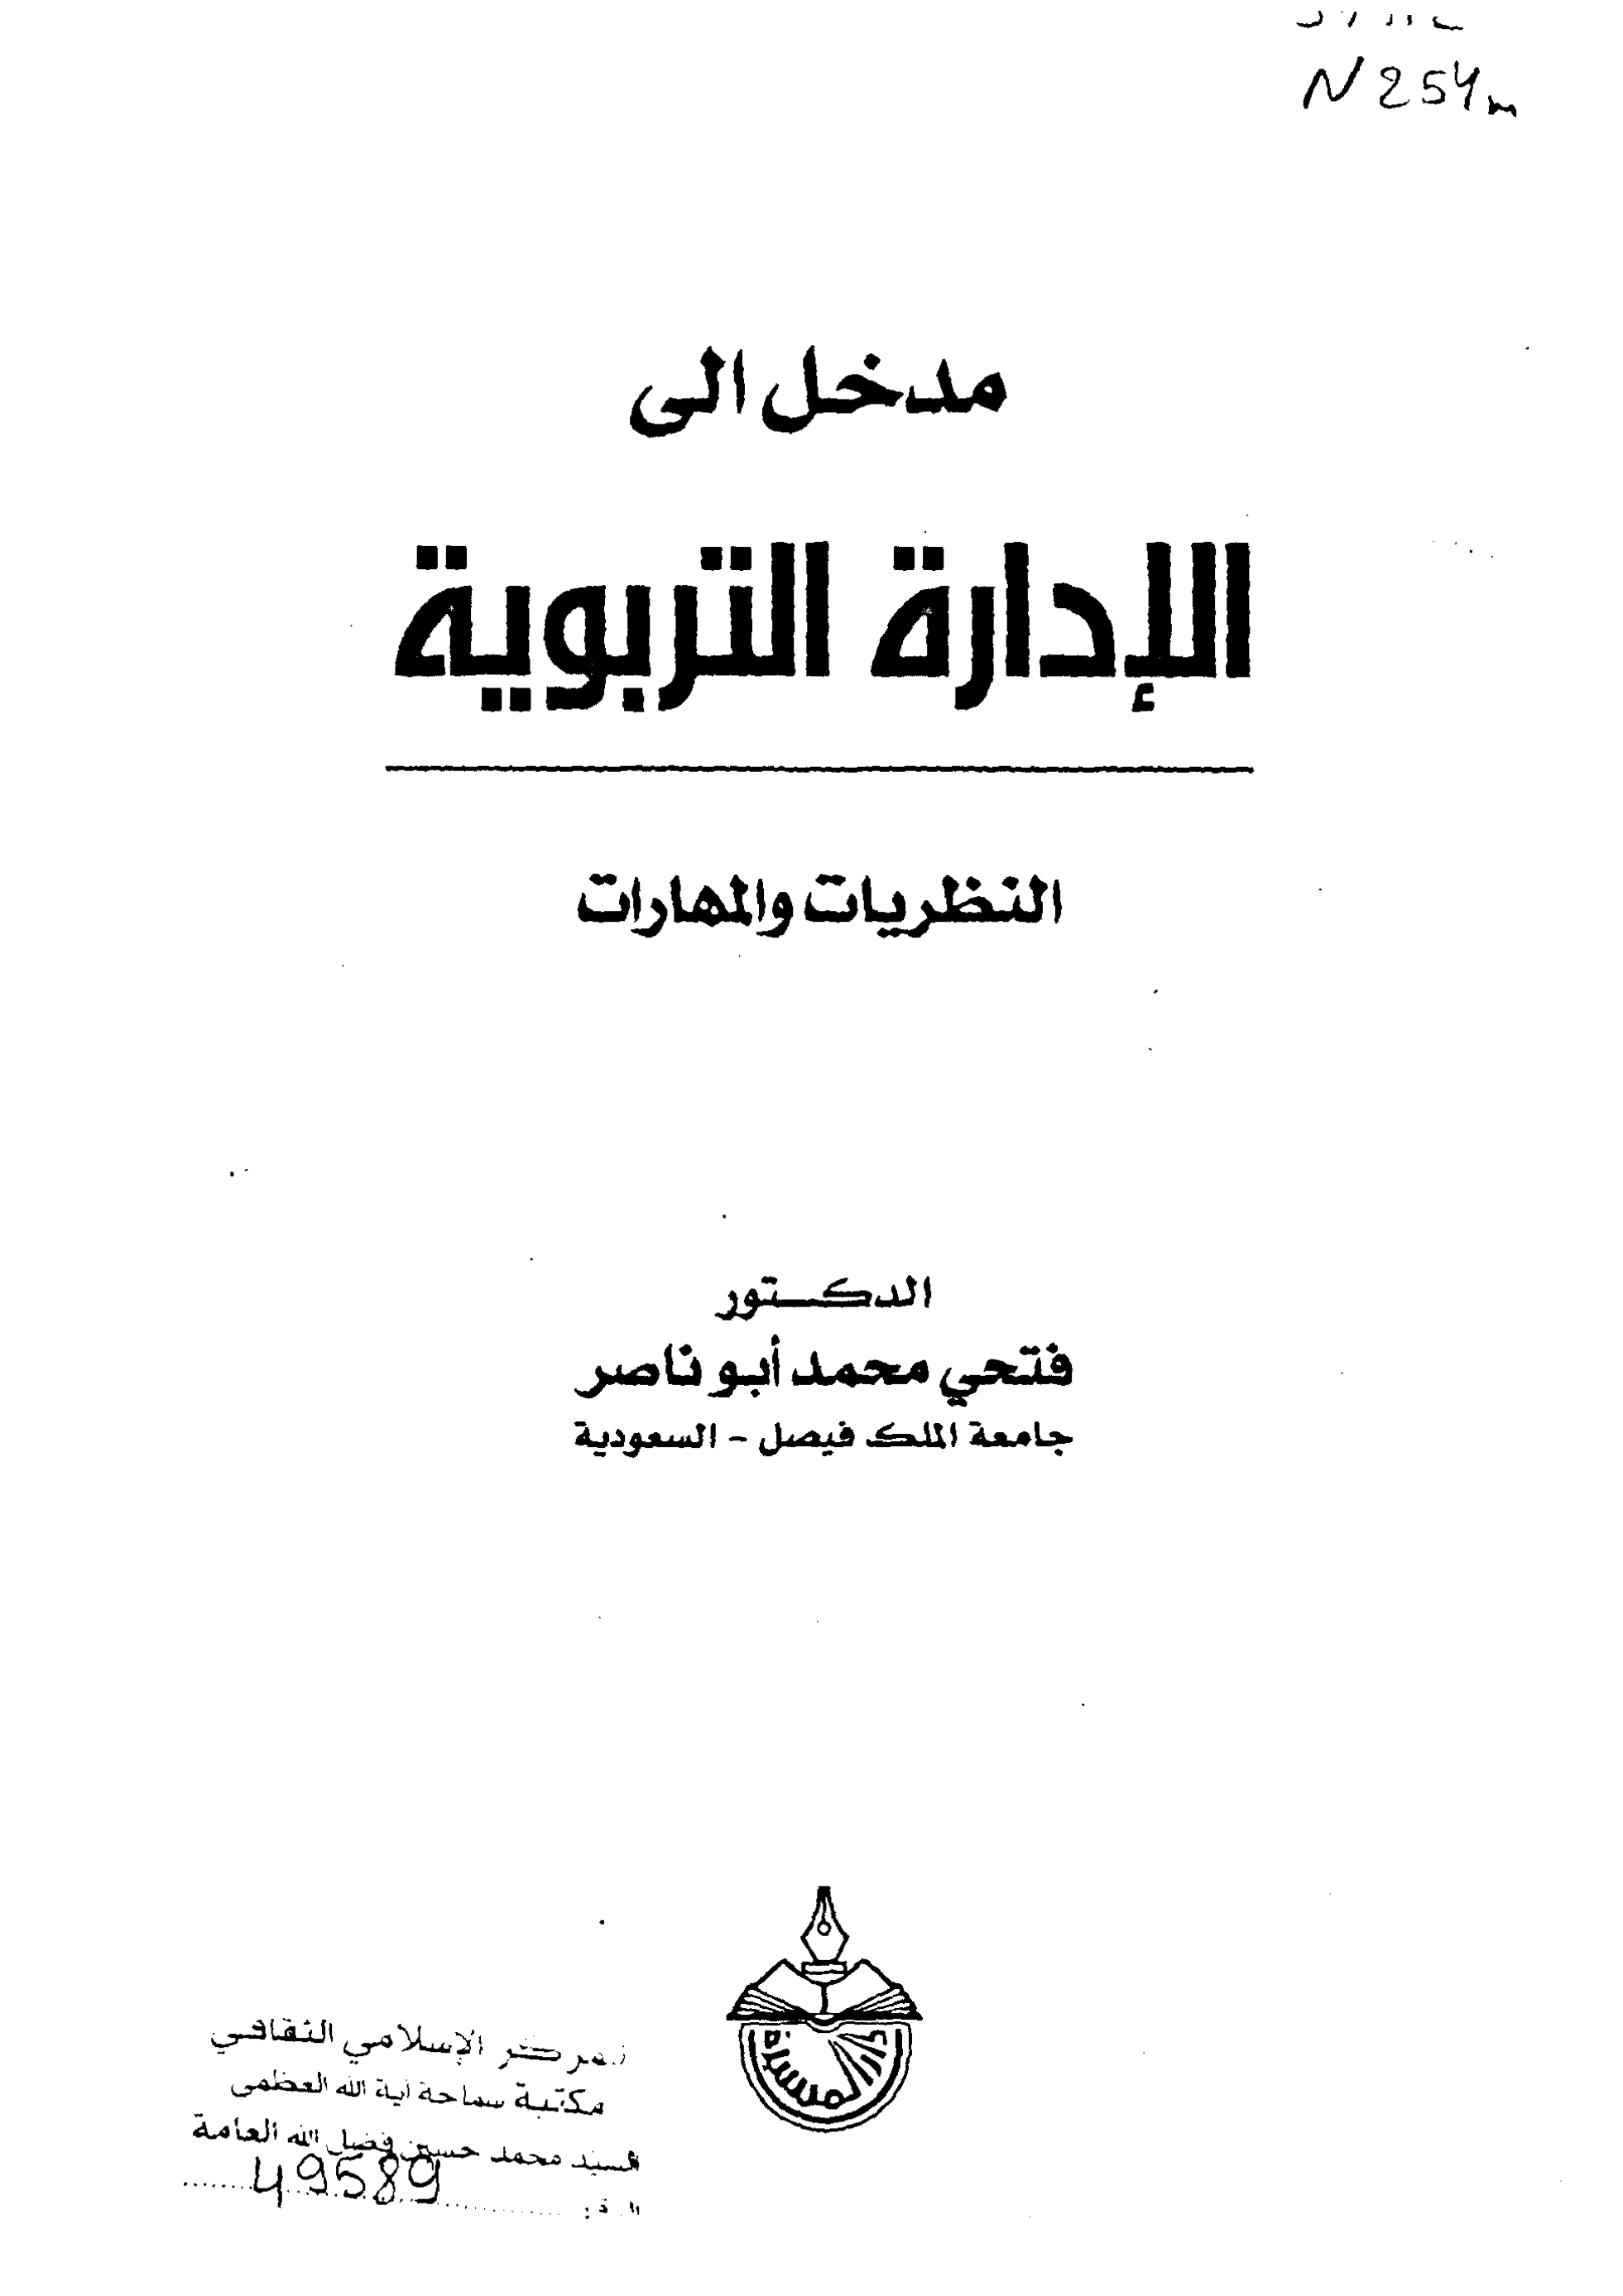 N254m
مدخل الى
الإدارة التربوية
النظريات والمهارات
الدكـــتور
فتحي محمد أبو ناصر
جامعة الملك فيصل - السعودية
دار المسيرة
المركز الإسلامي الثقافي
مكتبة سماحة آية الله العظمى
السيد محمد حسين فضل الله العامة
49589